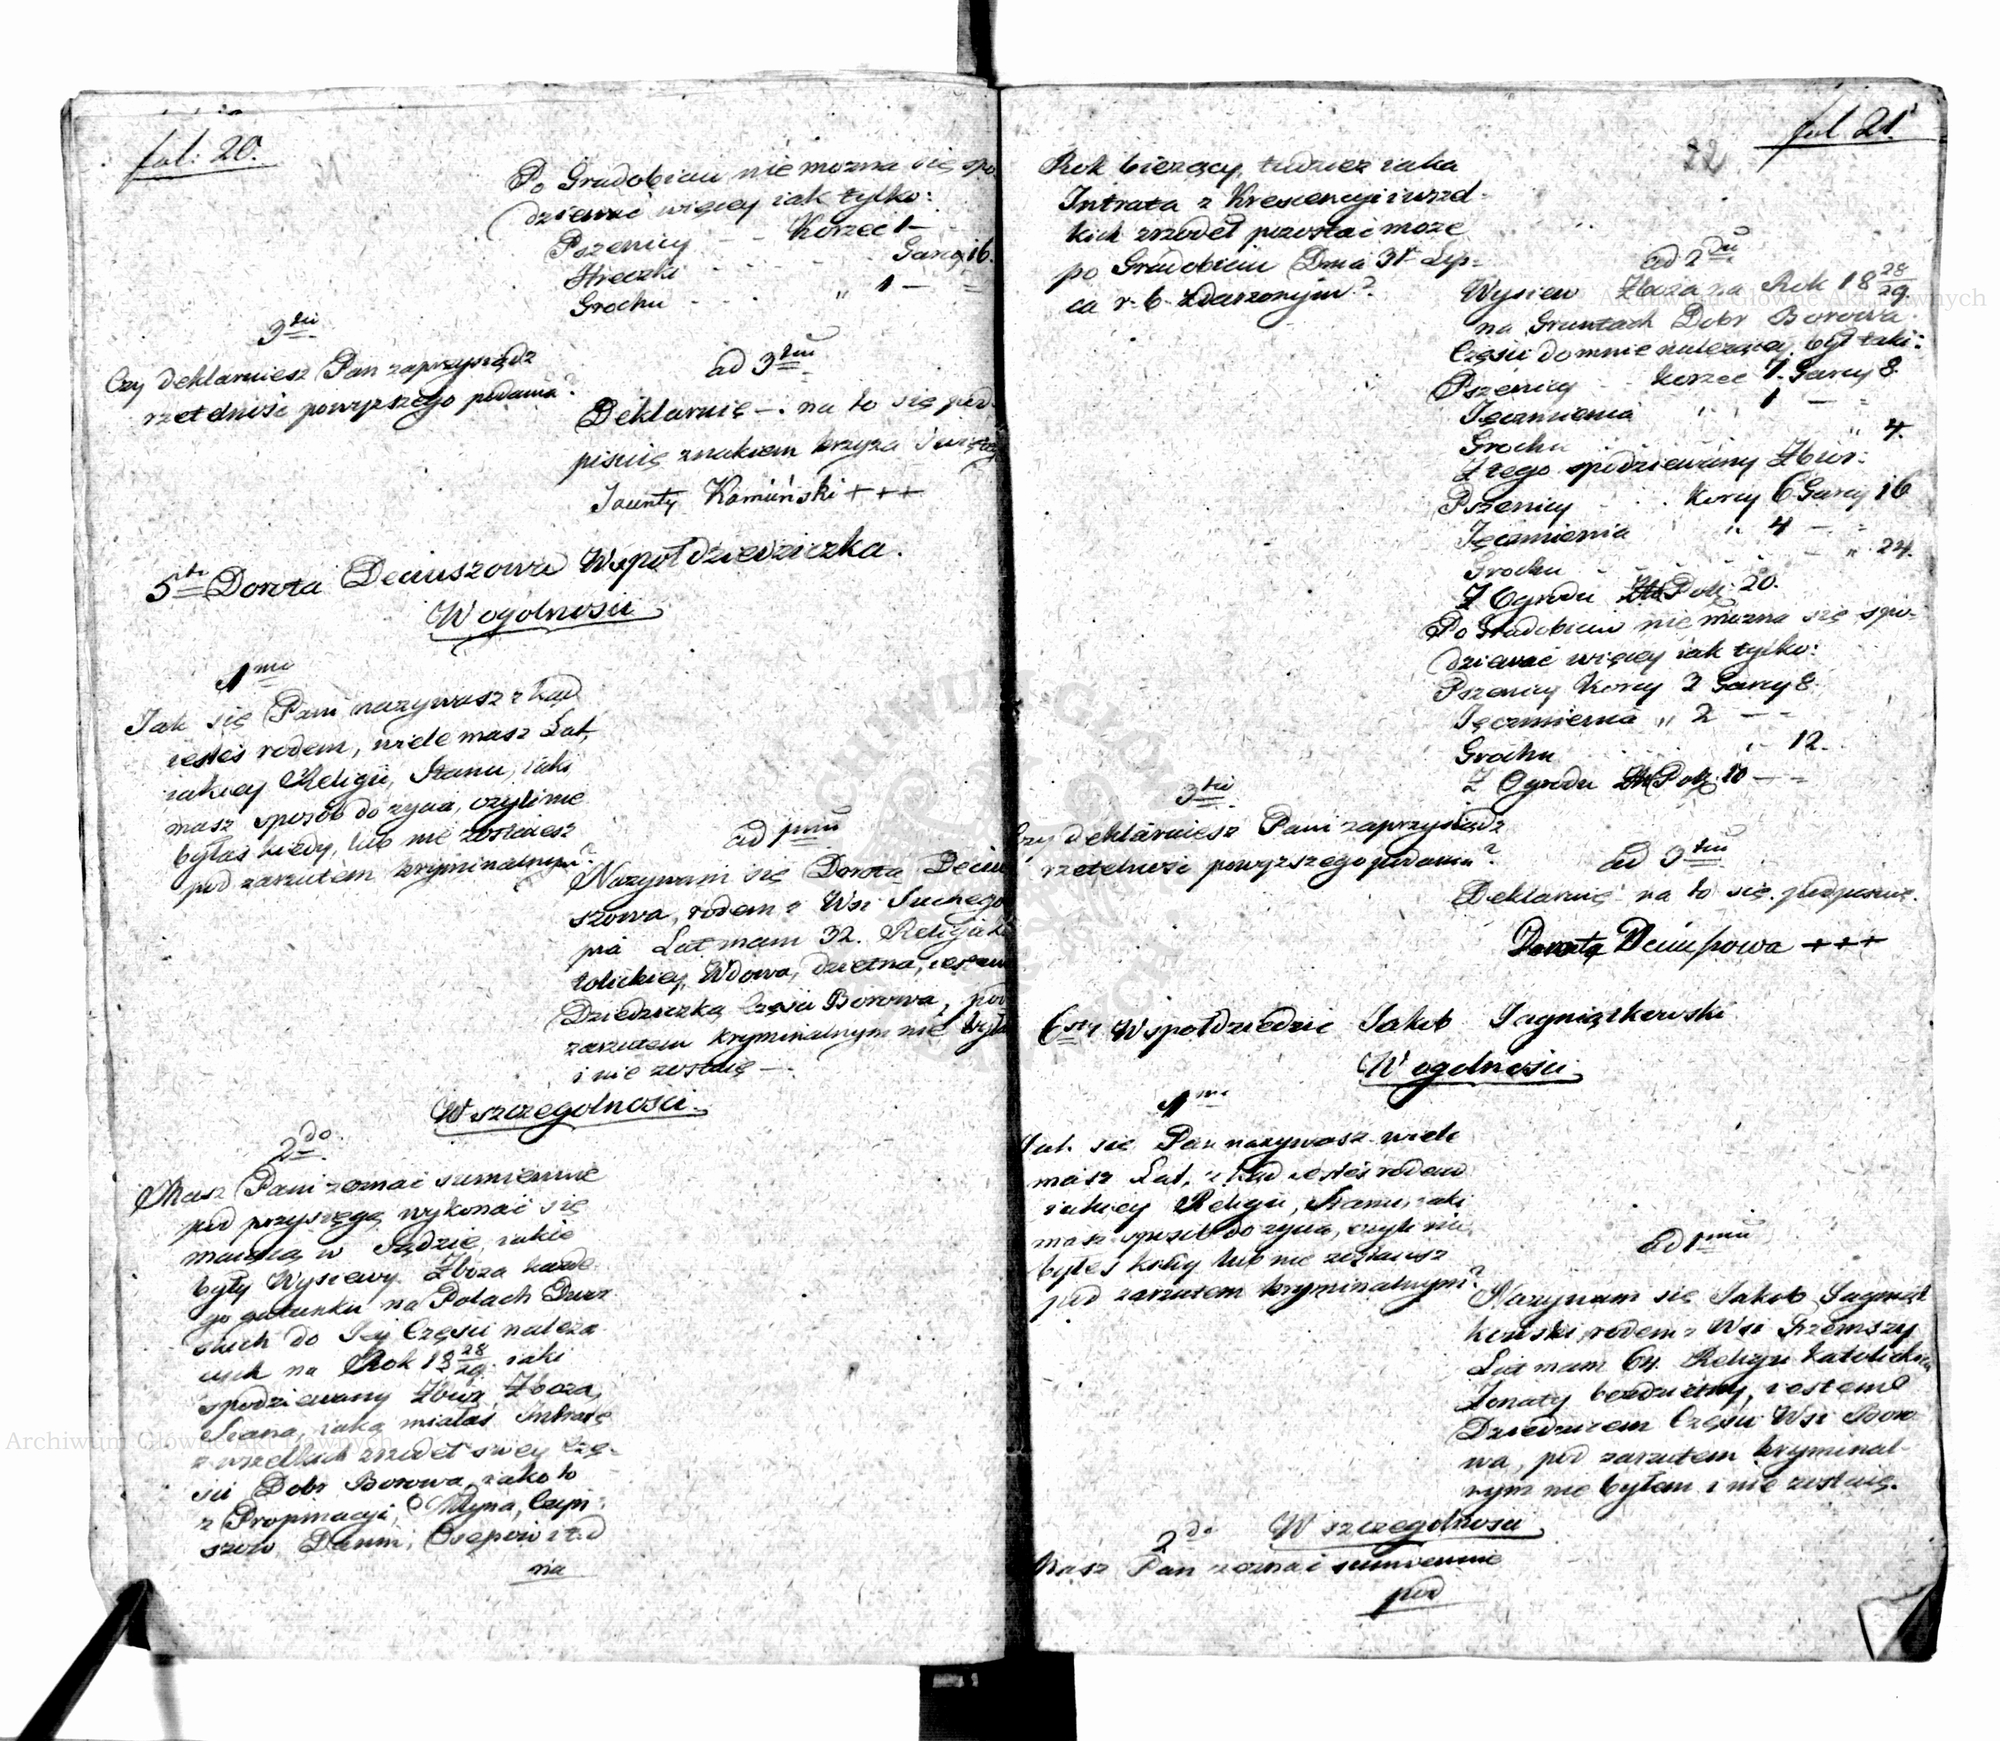 fol: 20.
Po Gradobiciu nie można się spo
dziewać więcey iak tylko:
Pszenicy - - Korzec 1 -
Hreczki - - - Garcy 16.
Grochu - - - „ 1 - =
3tio
Czy deklaruiesz Pan zaprzysiądz
rzetelność powyższego podania?
ad 3tium
Deklaruię - na to się pod
pisuię znakiem krzyża świętego
Jacenty Kamiński + + +
5to Dorota Deciuszowa Wspołdziedziczka.
W ogolności
1mo
Jak się Pani nazywasz z kąd
iesteś rodem, wiele masz Lat,
iakiey Religii, Stanu, iaki
masz sposób do życia, czyli nie
byłaś kiedy, lub nie zostaiesz
pod zarzutem kryminalnym?
ad 1mum
Nazywam się Dorota Deciu
szowa, rodem z Wsi Suchego
pnia Lat mam 32. Religii ka
tolickiey, Wdowa, dzietna, iestem
Dziedziczką Części Borowa, pod
zarzutem kryminalnym nie była
i nie zostaię -
W szczegolności.
2do
Masz Pani zeznać sumiennie
pod przysięgą wykonać się
maiącą w Sądzie, iakie
były Wysiewy Zboża każde
go gatunku na Polach Dwor
skich do Jey Części należą
cych na Rok 18 28/29. iaki
spodziewany Zbiór Zboża,
Siana, iaką miałaś Intratę
z wszelkich źrzodeł swey Czę-
ści Dobr Borowa, iako to
z Propinacyi, Młyna, Czyn-
szow, Danin, Osepow i t. d
na
fol 21.
22
Rok bieżący, tudzież iaka
Intrata z Krescencyi i wszel-
kich źrzodeł pozostać może
po Gradobiciu Dnia 31 Lip-
ca r. b. zdarzonym?
ad 2dum
Wysiew Zboża na Rok 18 28/29
na Gruntach Dobr Borowa
Części do mnie należącey był taki:
Pszenicy - Korzec 1. Garcy 8.
Jęczmienia „ 1 - =
Grochu - - - „ 4.
Z tego spodziewany Zbior:
Pszenicy - - Korcy 6 Garcy 16
Jęczmienia „ 4 - =
Grochu - - - „ 24.
Z Ogrodu Zł Pol: 20.
Po Gradobiciu nie można się spo-
dziewać więcey iak tylko:
Pszenicy Korcy 3 Garcy 8.
Jęczmienia „ 2 - =
Grochu - - - 12.
Z Ogrodu Zł Pol: 10 - =
3tio
Czy deklaruiesz Pani zaprzysiądz
rzetelność powyższego podania?
ad 3tium
Deklaruię na to się podpisuię.
Dorota Deciuszowa + + +
6sty Wspołdziedzic Jakob Jagniątkowski
W ogolności.
1mo
Jak się Pan nazywasz wiele
masz Lat, z kąd iesteś rodem
iakiey Religii, Stanu, iaki
masz sposób do życia, czyli nie
byłeś kiedy lub nie zostaiesz
pod zarzutem kryminalnym?
ad 1mum
Nazywam się Jakob Jagniąt
kowski, rodem z Wsi
Lat mam 64. Religii katolickiey
Żonaty bezdzietny, iestem
Dziedzicem Części Wsi Boro
wa, pod zarzutem kryminal-
nym nie byłem i nie zostaię.
2do W szczegolności
Masz Pan zeznać sumiennie
pod